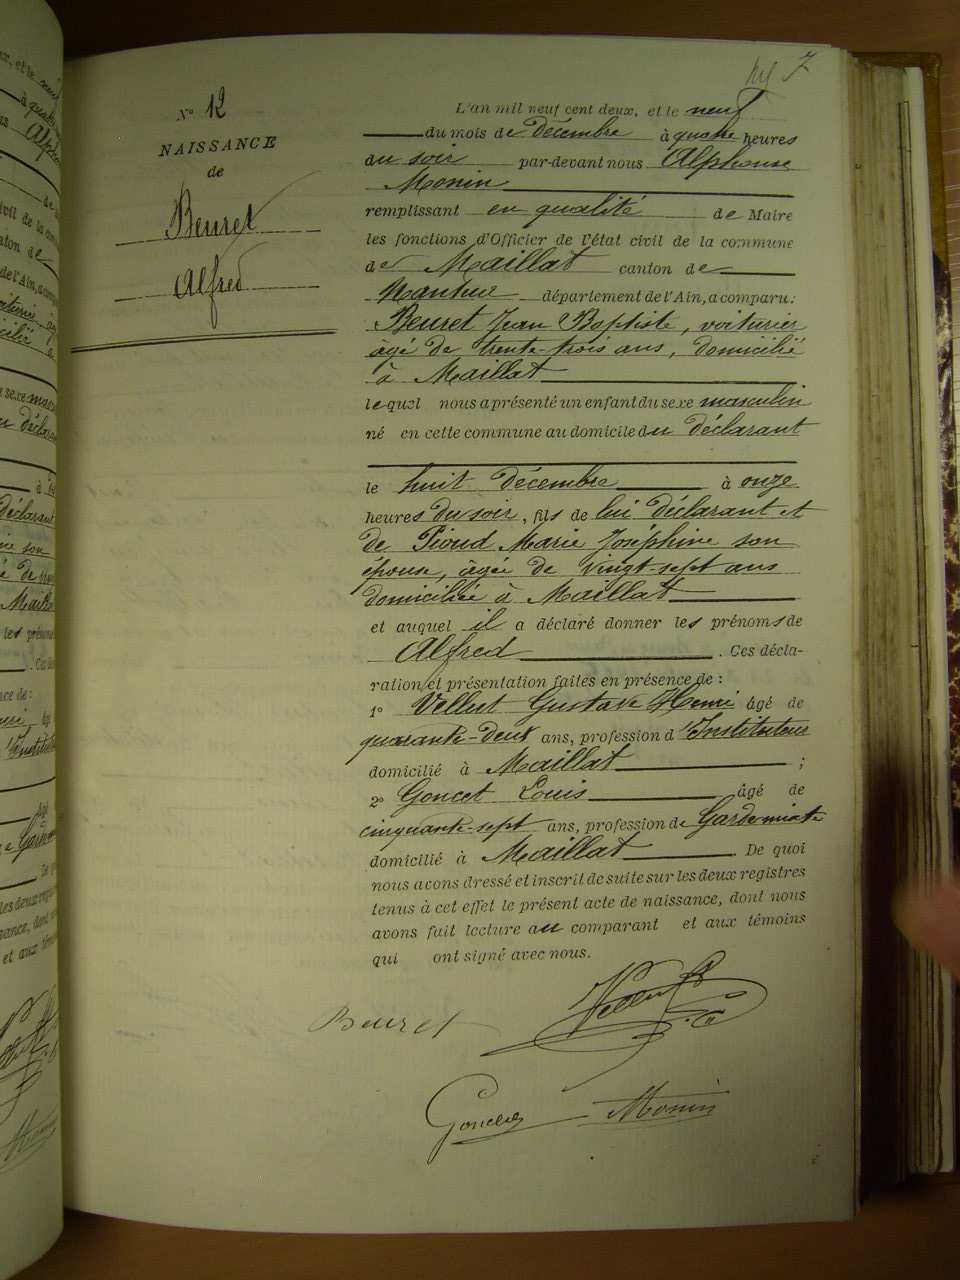 7
N° 12
NAISSANCE
de
Beuret
Alfred
L'an mil neuf cent deux, et le neuf
du mois de Décembre à quatre heures
du soir par-devant nous Alphonse
Monin
remplissant en qualité de Maire
les fonctions d'Officier de l'état civil de la commune
de Maillat canton de
Nantua département de l'Ain, a comparu:
Beuret Jean Baptiste, voiturier
âgé de trente-trois ans, domicilié
à Maillat
lequel nous a présenté un enfant du sexe masculin
né en cette commune au domicile du déclarant
le huit décembre à onze
heures du soir, fils de lui déclarant et
de Pioud Marie Joséphine son
épouse, âgée de vingt-sept ans
domiciliée à Maillat
et auquel il a déclaré donner les prénoms de
Alfred. Ces décla-
ration et présentation faites en présence de :
1° Vellut Gustave Henri âgé de
quarante-deux ans, profession d'Instituteur
domicilié à Maillat ;
2° Goncet Louis âgé de
cinquante-sept ans, profession de Garde-mixte
domicilié à Maillat. De quoi
nous avons dressé et inscrit de suite sur les deux registres
tenus à cet effet le présent acte de naissance, dont nous
avons fait lecture au comparant et aux témoins
qui ont signé avec nous.
Beuret Vellut
Goncet Monin